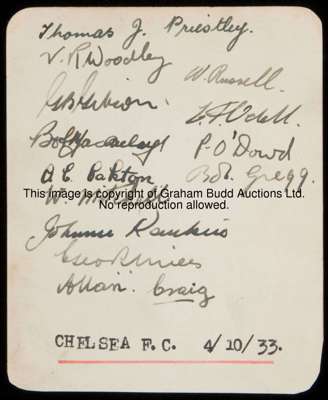 Thomas J. Priestley.
V. R Woodley
W. Russell.
G B Gibson.
L F Odell.
Bob Macaulay
P. O'Dowd
A. C. Oakton
Bob. Gregg.
This image is copyright of Graham Budd Auctions Ltd.
No reproduction allowed.
W.
Johnnie Rankin
Geo R Mills
Allan Craig
CHELSEA F.C. 4/10/33.